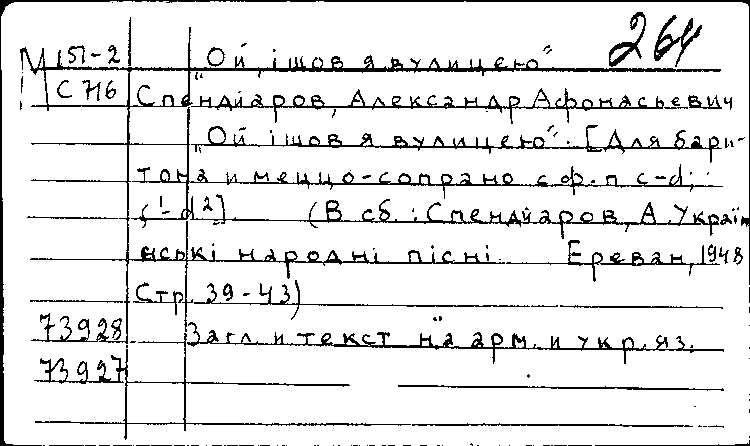 264
М 151-2 „Ой, ішов я вулицею“
С 716 Спендіаров, Александр Афонасьевич
„Ой ішов я вулицею“. [Для бари-
тона и меццо-сопрано с ф.-п c-d;
c¹-d²]. (В сб.: Спендіаров, А. Украïн
нські народні пісні Ереван, 1948
Стр. 39-43)
73928 Загл. и текст на арм. и укр. яз.
73927